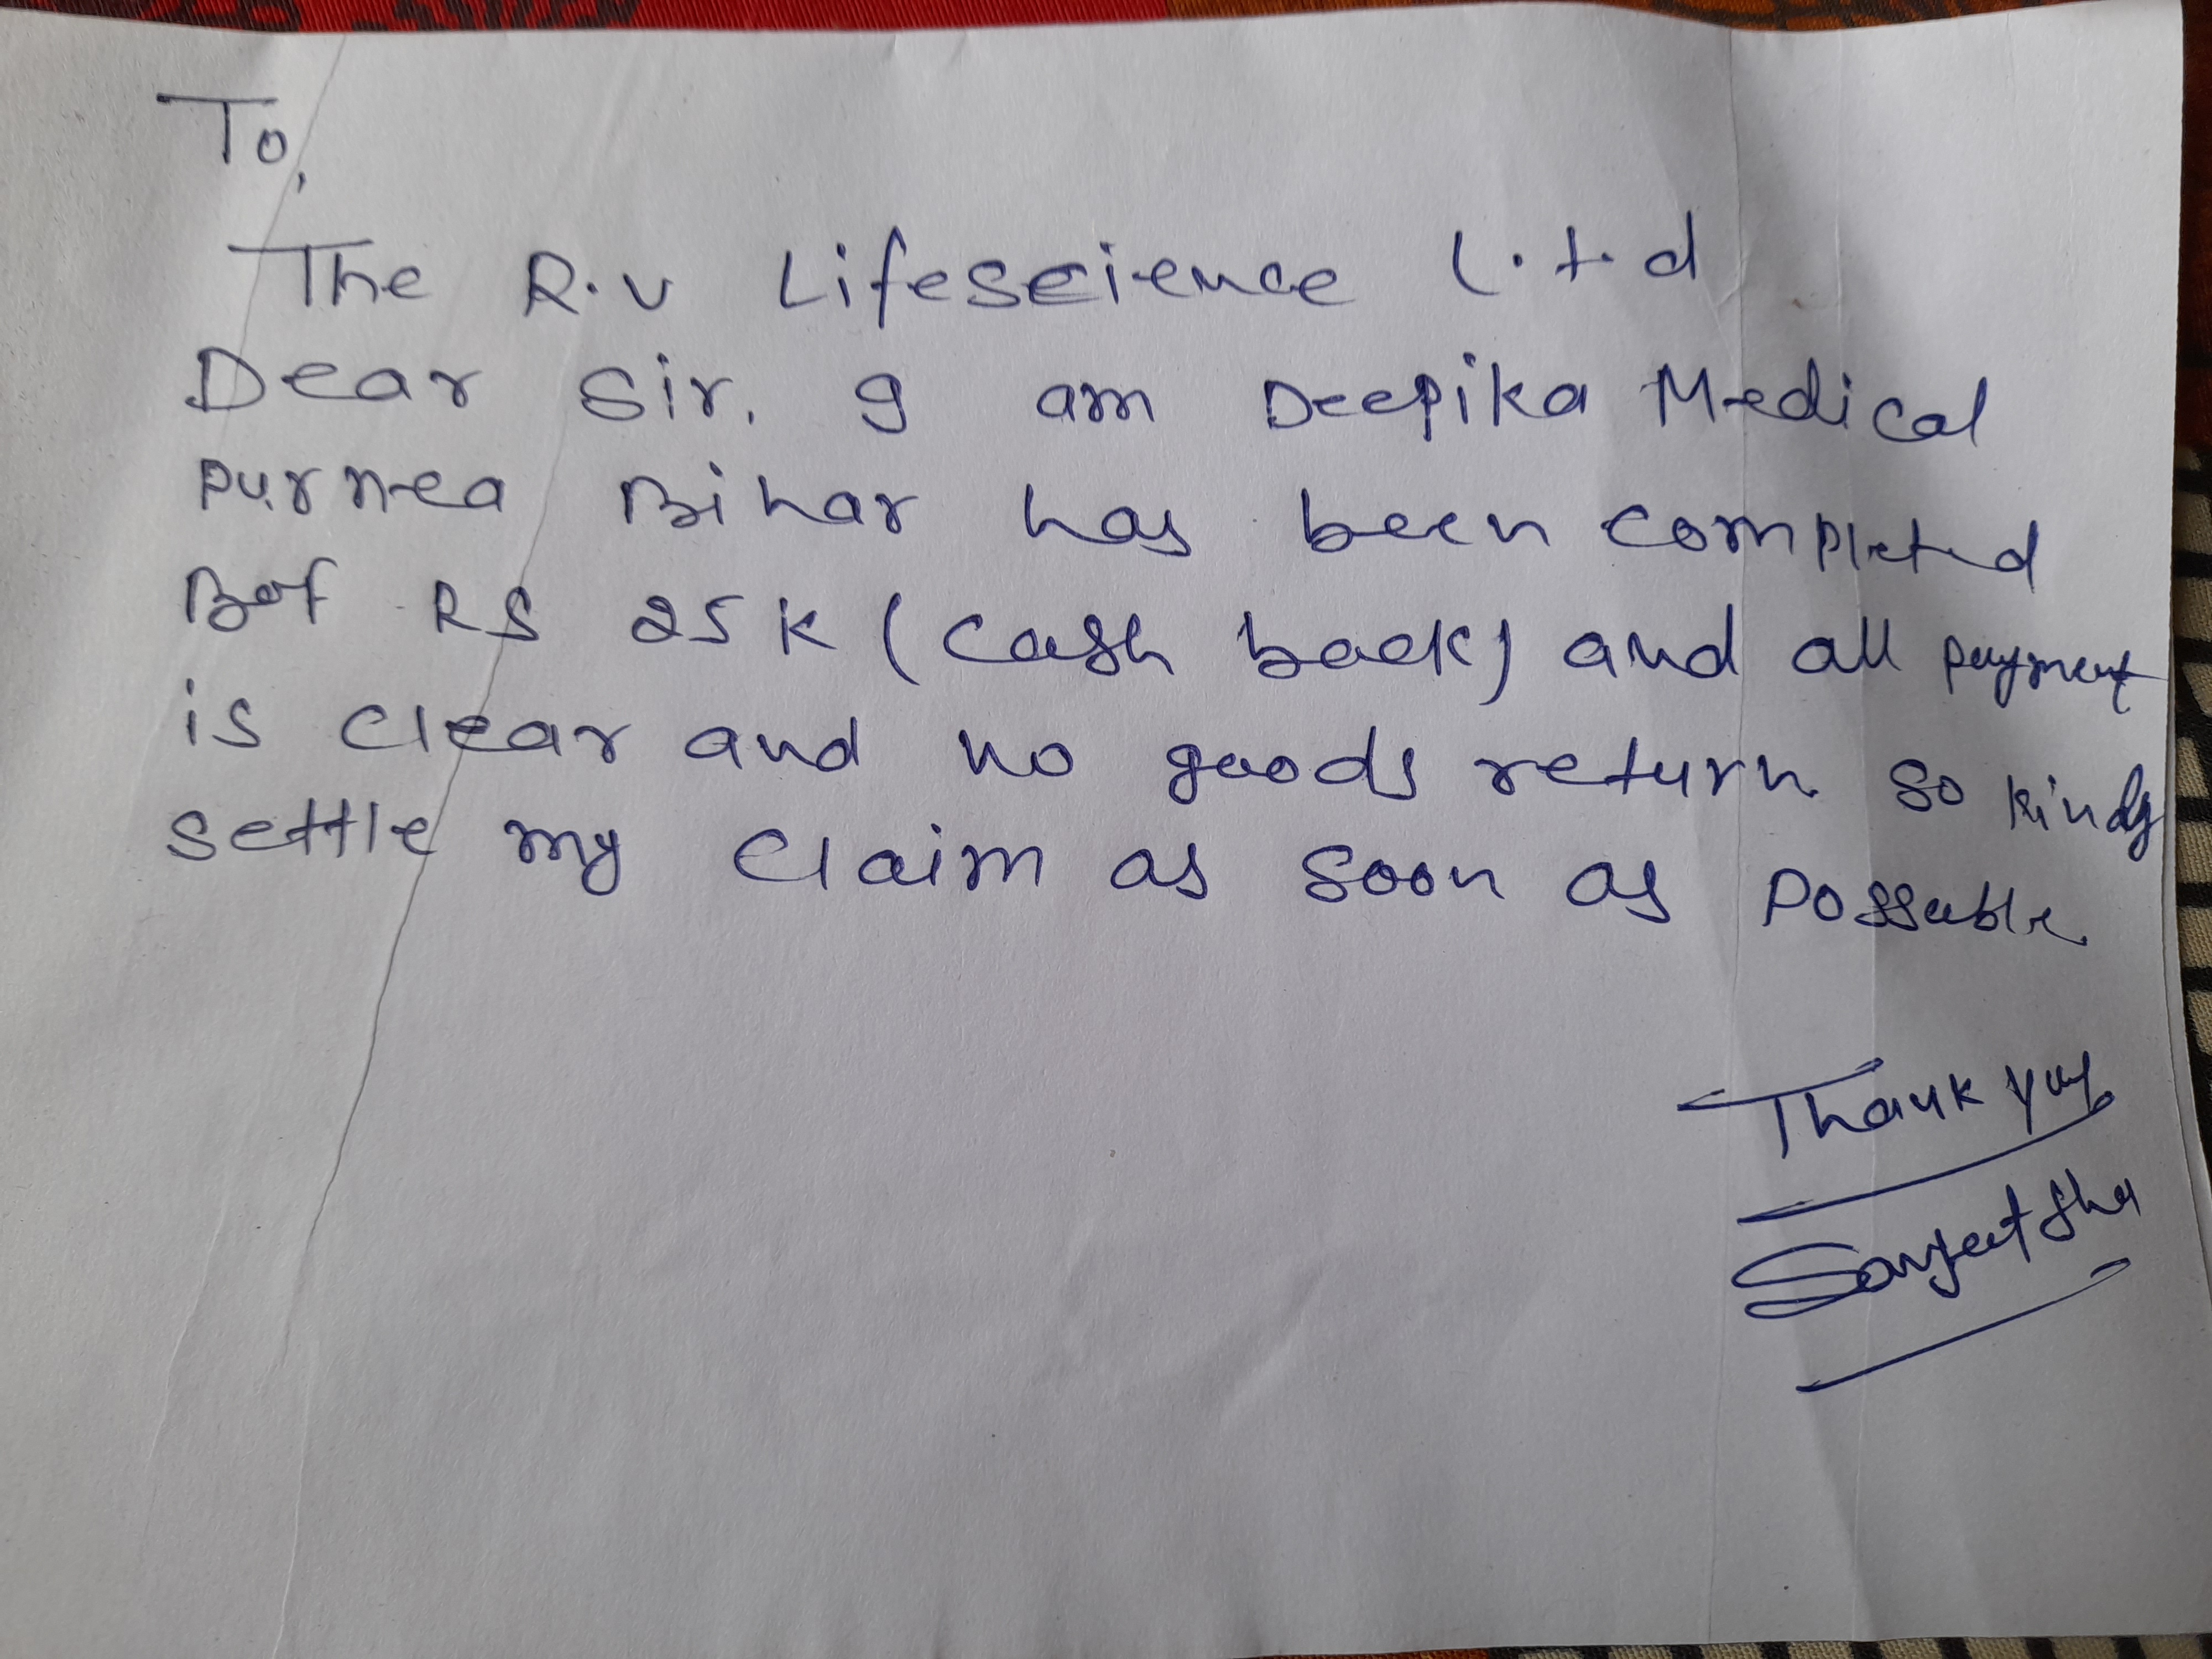 To,
The R.V Lifescience L.t.d
Dear Sir. I am Deepika Medical
Purnea Bihar has been completed
RS 25K (Cash back) and all payment
is clear and no goods return so kindly
settle my claim as soon as Possable
Thank you